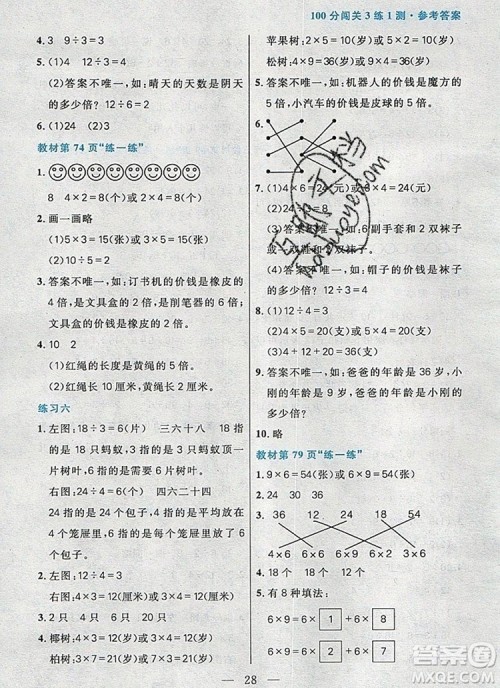 100分闯关3练1测·参考答案
4. 3 9÷3=3
5. (1)答案不唯一,如:晴天的天数是阴天
的多少倍? 12÷6=2
6. (1)24 (2)3
教材第74页“练一练”
1.
8 4×2=8(个)或2×4=8(个)
2. 画一画略
(1)5×3=15(张)或3×5=15(张)
(2)10÷5=2
3. 答案不唯一,如:订书机的价钱是橡皮的
4倍,是文具盒的2倍,是削笔器的5倍。
文具盒的价钱是橡皮的2倍。
4. 10 2
(1)红绳的长度是黄绳的5倍。
(2)红绳长10厘米,黄绳长2厘米。
练习六
1. 左图:18÷3=6(片) 三六十八 18指
的是18只蚂蚁,3指的是每片树叶上有
3只蚂蚁,6指的是可以站满6片树叶。
右图:24÷6=4(个) 四六二十四
24指的是平均放在4个笼屉里的包子
数,4指的是4个笼屉,6指的是每个笼
屉里有6个包子。
2. 左图:12÷4=3
右图:3×4=12(厘米)或4×3=12(厘米)
3. 2只 2只
4. 椰树:4×5=20(岁)或5×4=20(岁)
杨树:3×7=21(岁)或7×3=21(岁)
苹果树:2×6=12(岁)或6×2=12(岁)
松树:4×8=32(岁)或8×4=32(岁)
5. 答案不唯一,如:机器人的价钱是魔方的
5倍,小汽车的价钱是皮球的5倍。
6.
7. (1)4×6=24(元)或6×4=24(元)
(2)3×8=24(元)或8×3=24(元)
(3)答案不唯一,如:6副手套和2
(4)答案不唯一,如:帽子的价钱是袜子
的多少倍? 12÷4=3
8. (1)12÷4=3
(2)4×5=20(支)或5×4=20(支)
9. 答案不唯一,如:爸爸的年龄是36岁,小
刚的年龄是9岁,爸爸的年龄是小刚的
多少倍? 36÷9=4
10. 略
教材第79页“练一练”
1. 9×6=54(页)或6×9=54(页)
2. 24 30 36
3. 12 24 36 54
4×6 6×6 6×9 2×6
4. 18个 12个 18个
5. 有8种填法:
6×1=6 6×8
6×2=12 6×7
28